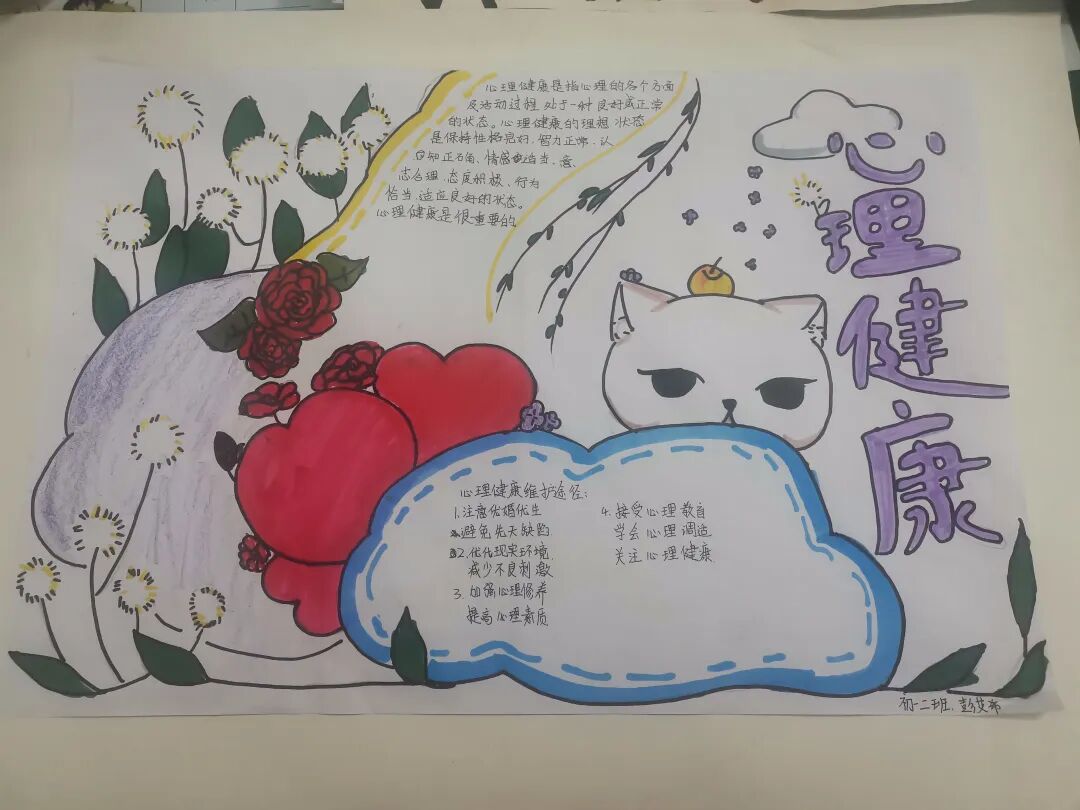 心理健康是指心理的各个方面
及活动过程处于一种良好或正常
的状态。心理健康的理想状态
是保持性格完好、智力正常、认
知正确、情感适当、意
志合理、态度积极、行为
恰当、适应良好的状态。
心理健康是很重要的
心理健康
心理健康维护途径：
1.注意优婚优生
避免先天缺陷
2.优化现实环境
减少不良刺激
3.加强心理修养
提高心理素质
4.接受心理教育
学会心理调适
关注心理健康
初一二班.彭艾